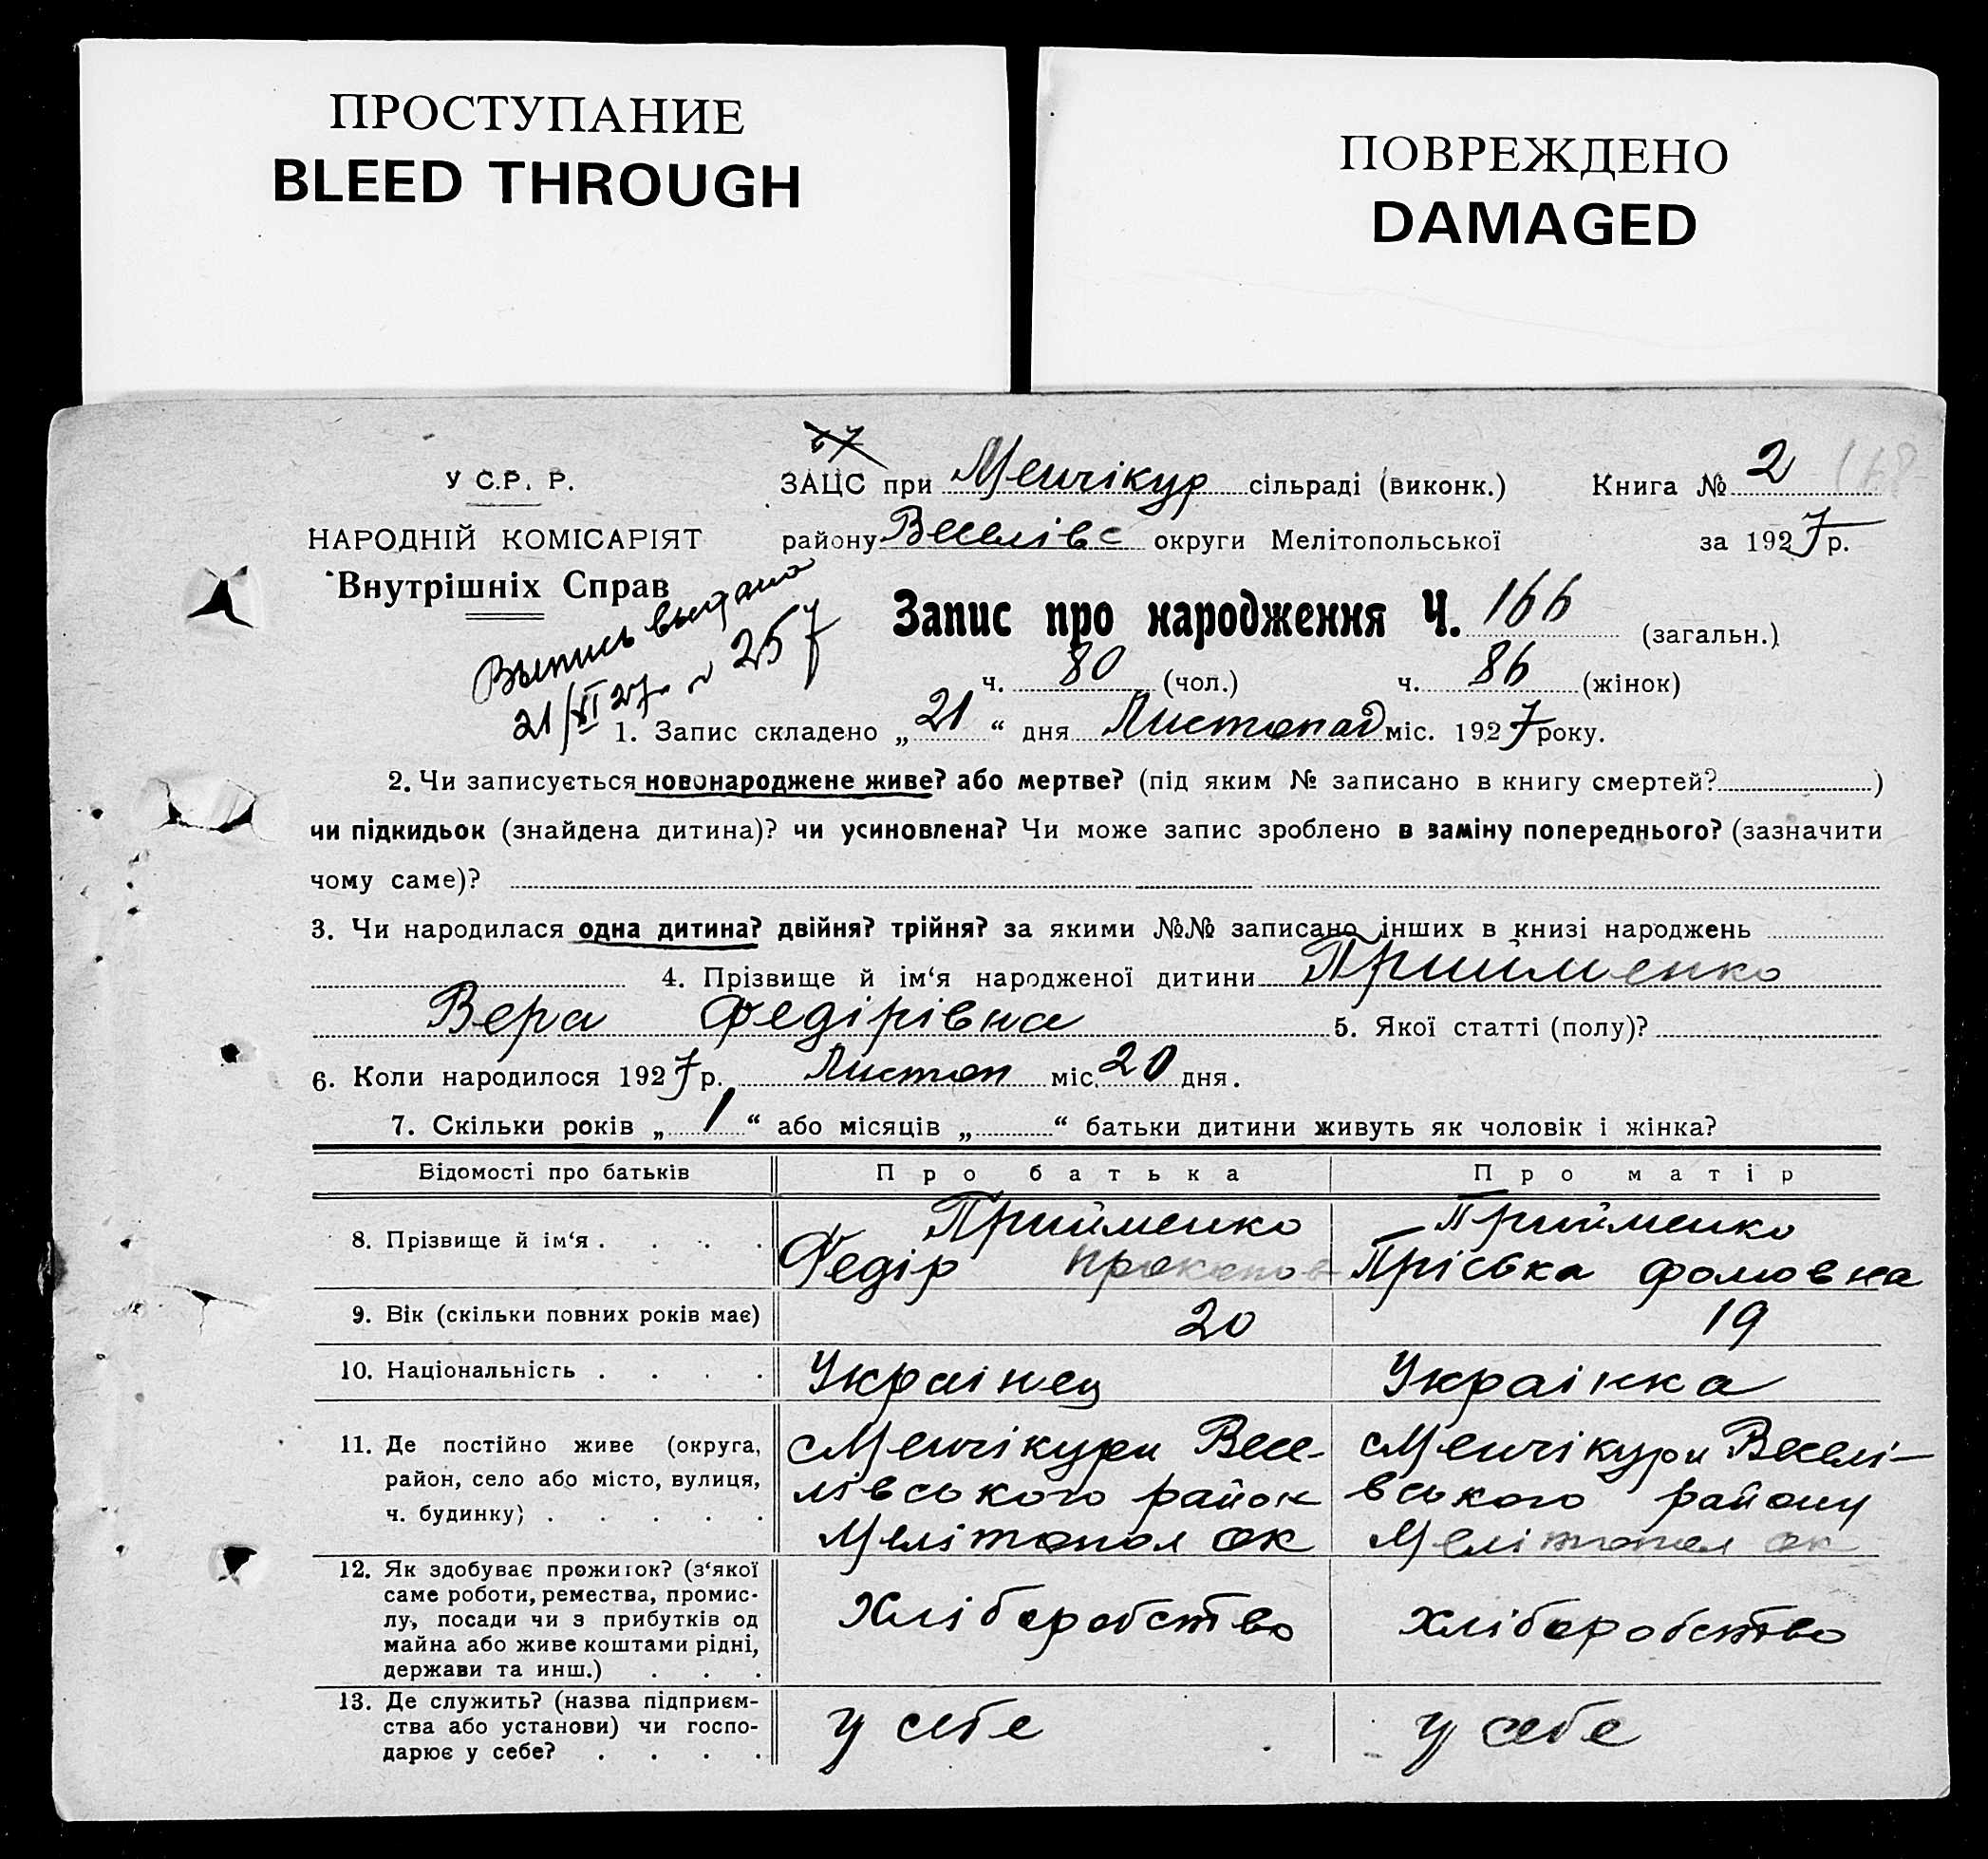 ПРОСТУПАНИЕ
BLEED THROUGH
ПОВРЕЖДЕНО
DAMAGED
У С.Р. Р.
НАРОДНІЙ КОМІСАРІЯТ
Внутрішніх Справ
Выпись выдана
21/XI 27 г. № 257
67
ЗАЦС при Менчікур сільраді (виконк.) Книга № 2 168
району Веселівс округи Мелітопольської за 1927 р.
Запис про народження Ч. 166 (загальн.)
ч. 80 (чол.) ч. 86 (жінок)
1. Запис складено „21“ дня Листопад міс. 1927 року.
2. Чи записується новонароджене живе? або мертве? (під яким № записано в книгу смертей? )
чи підкидьок (знайдена дитина)? чи усиновлена? Чи може запис зроблено в заміну попереднього? (зазначити
чому саме)?
3. Чи народилася одна дитина? двійня? трійня? за якими №№ записано інших в книзі народжень
4. Прізвище й ім‘я народженої дитини Прийменко
Вера Федірівна 5. Якої статті (полу)?
6. Коли народилося 1927 р. Листоп міс. 20 дня.
7. Скільки років „1“ або місяців „ “ батьки дитини живуть як чоловік і жінка?
Відомості про батьків Про батька Про матір
8. Прізвище й ім‘я . . . . Прийменко Прийменко
Федір Прокопов Пріська Фомовна
9. Вік (скільки повних років має) 20 19
10. Національність . . . . Украінец Украінка
11. Де постійно живе (округа, Менчікури Весе- Менчікури Веселі-
район, село або місто, вулиця, лівського район вського району
ч. будинку) . . . . . Мелітопол ок Мелітопол ок
12. Як здобуває прожиток? (з‘якої
саме роботи, ремества, промис-
лу, посади чи з прибутків од Хліборобство Хліборобство
майна або живе коштами рідні,
держави та инш.) . . .
13. Де служить? (назва підприєм-
ства або установи) чи госпо- у себе у себе
дарює у себе? . . . .